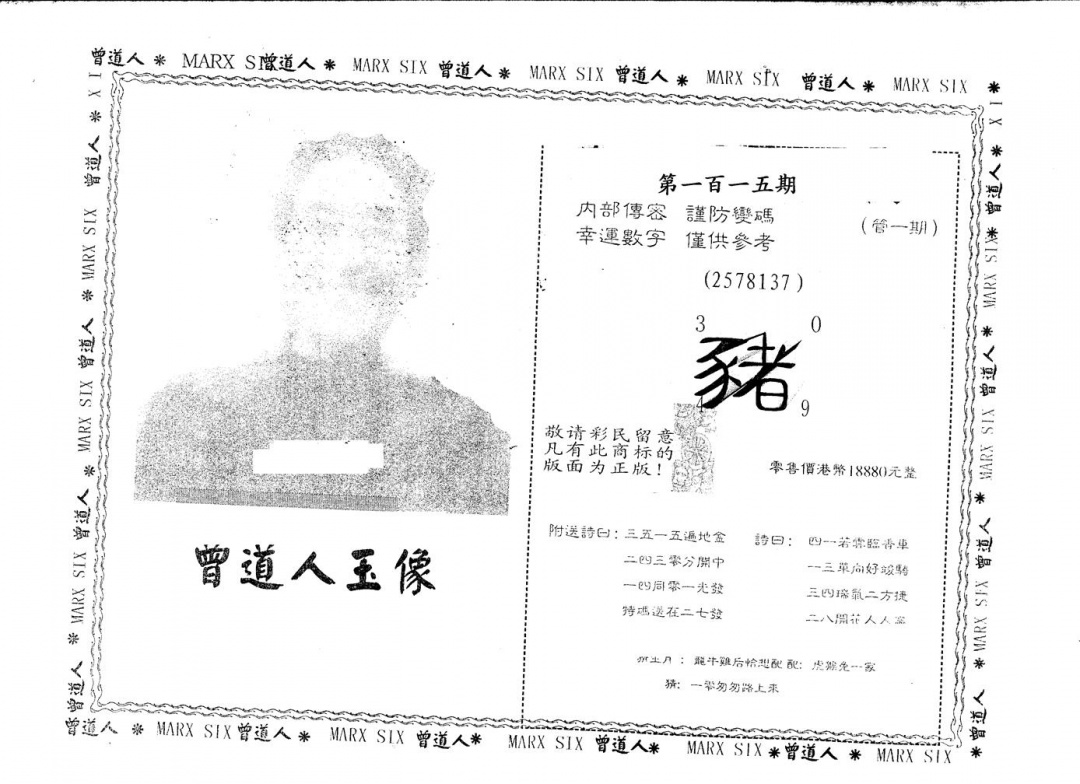 曾道人 * MARX SIX 曾道人 * MARX SIX 曾道人 * MARX SIX 曾道人 * MARX SIX 曾道人 * MARX SIX *
第一百一五期
内部傳密 謹防變碼
幸運數字 僅供參考
(管一期)
(2578137)
3 0
豬
4 9
敬请彩民留意
凡有此商标的
版面为正版!
零售價港幣18880元整
附送詩曰:三五一五遍地金
二四三零分開中
一四同零一光發
特碼送在二七發
詩曰: 四一若雲臨香車
一三單向好竣騎
三四瑞氣二方捷
二八開花人人
龍牛雞后 配: 虎猴兔一家
猜: 一零匆匆路上来
曾道人玉像
曾道人 * MARX SIX 曾道人 * MARX SIX 曾道人* MARX SIX 曾道人* MARX SIX *曾道人 * MARX SIX *
曾道人 * MARX SIX 曾道人 * MARX SIX 曾道人 * MARX SIX 曾道人 * IX
IX * 曾道人 * MARX SIX * 曾道人 MARX SIX * 曾道人 * MARX SIX * 曾道人 *